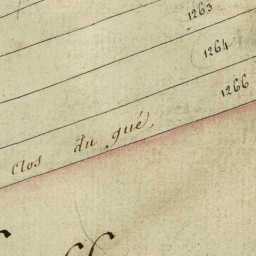 1263
1264
1266
clos du gué,